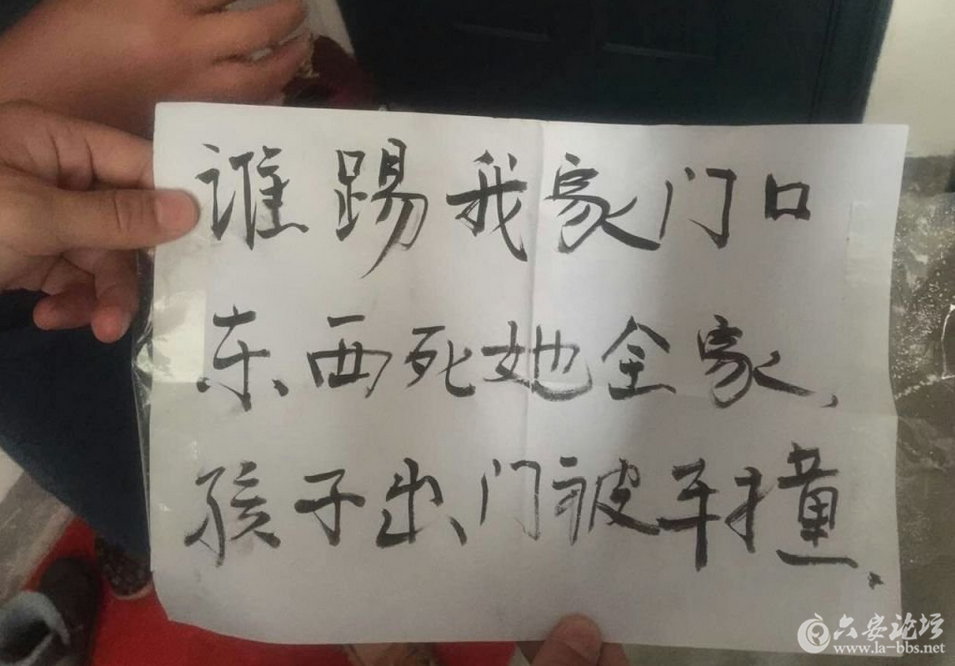 谁踢我家门口
东西死她全家、
孩子出门被车撞、
六安论坛
www.la-bbs.net